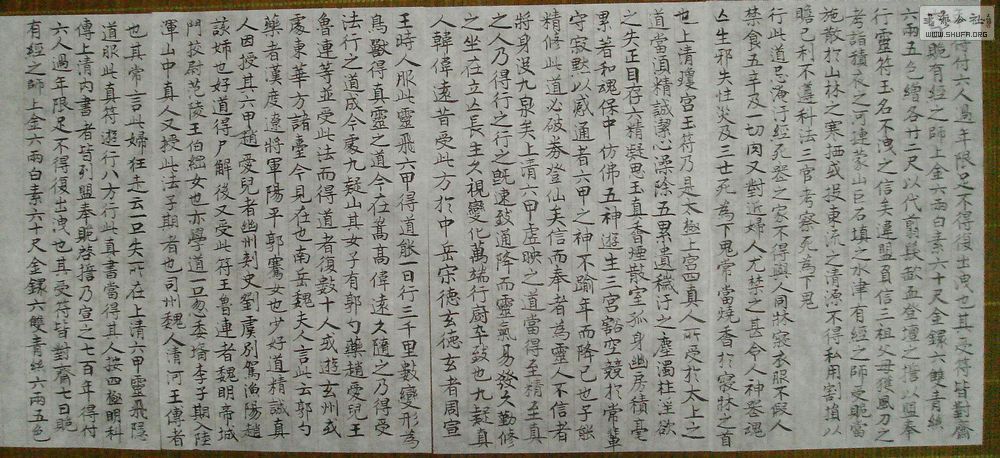 得付六人過年限足不得復出洩也其受符皆對齋
賜有經之師上金六兩白素六十尺金鐶六雙青絲
六兩五色繒各廿二尺以代翦髮歃血登壇之誓以盟奉
行靈符玉名不洩之信矣違盟負信三祖父母獲風刀之
考詣積夜之河運蒙山巨石填之水津有經之師受賜當
施散於山林之寒栖或投東流之清源不得私用割損以
贍己利不遵科法三官考察死為下鬼
行此道忌淹汙經死喪之家不得與人同牀寢衣服不假人
禁食五辛及一切肉又對近婦人尤禁之甚令人神喪魂
亡生邪失性災及三世死為下鬼常當燒香於寢牀之首
也上清瓊宮玉符乃是太極上宮四真人所受於太上之
道當須精誠潔心澡除五累遺穢汙之塵濁杜淫欲
之失正目存六精凝思玉真香煙散室孤身幽房積毫
累著和魂保中仿佛五神遊生三宮豁空競於常輩
守寂默以感通者六甲之神不踰年而降己也子能
精修此道必破券登仙矣信而奉者為靈人不信者
將身沒九泉矣上清六甲虛映之道當得至精至真
之人乃得行之行之既速致通降而靈氣易發久勤修
之坐在立亡長生久視變化萬端行廚卒致也九疑真
人韓偉遠昔受此方於中岳宋德玄德玄者周宣
王時人服此靈飛六甲得道能一日行三千里數變形為
鳥獸得真靈之道今在嵩高偉遠久隨之乃得受
法行之道成今處九疑山其女子有郭勺藥趙愛兒王
魯連等並受此法而得道者復數十人或遊玄州或
處東華方諸臺今見在也南岳魏夫人言此云郭勺
藥者漢度遼將軍陽平郭騫女也少好道精誠真
人因授其六甲趙愛兒者幽州刺史劉虞別駕漁陽趙
該姊也好道得尸解後又受此符王魯連者魏明帝城
門校尉范陵王伯綱女也亦學道一旦忽委壻李子期入陸
渾山中真人又授此法子期者也司州魏人清河王傳者
也其常言此婦狂走云一旦失所在上清六甲靈飛隱
道服此真符遊行八方行此真書當得其人按四極明科
傳上清內書者皆列盟奉賜啟授乃宣之七百年得付
六人過年限足不得復出洩也其受符皆對齋七日賜
有經之師上金六兩白素六十尺金鐶六雙青絲六兩五色
WWW.SHUFA.ORG